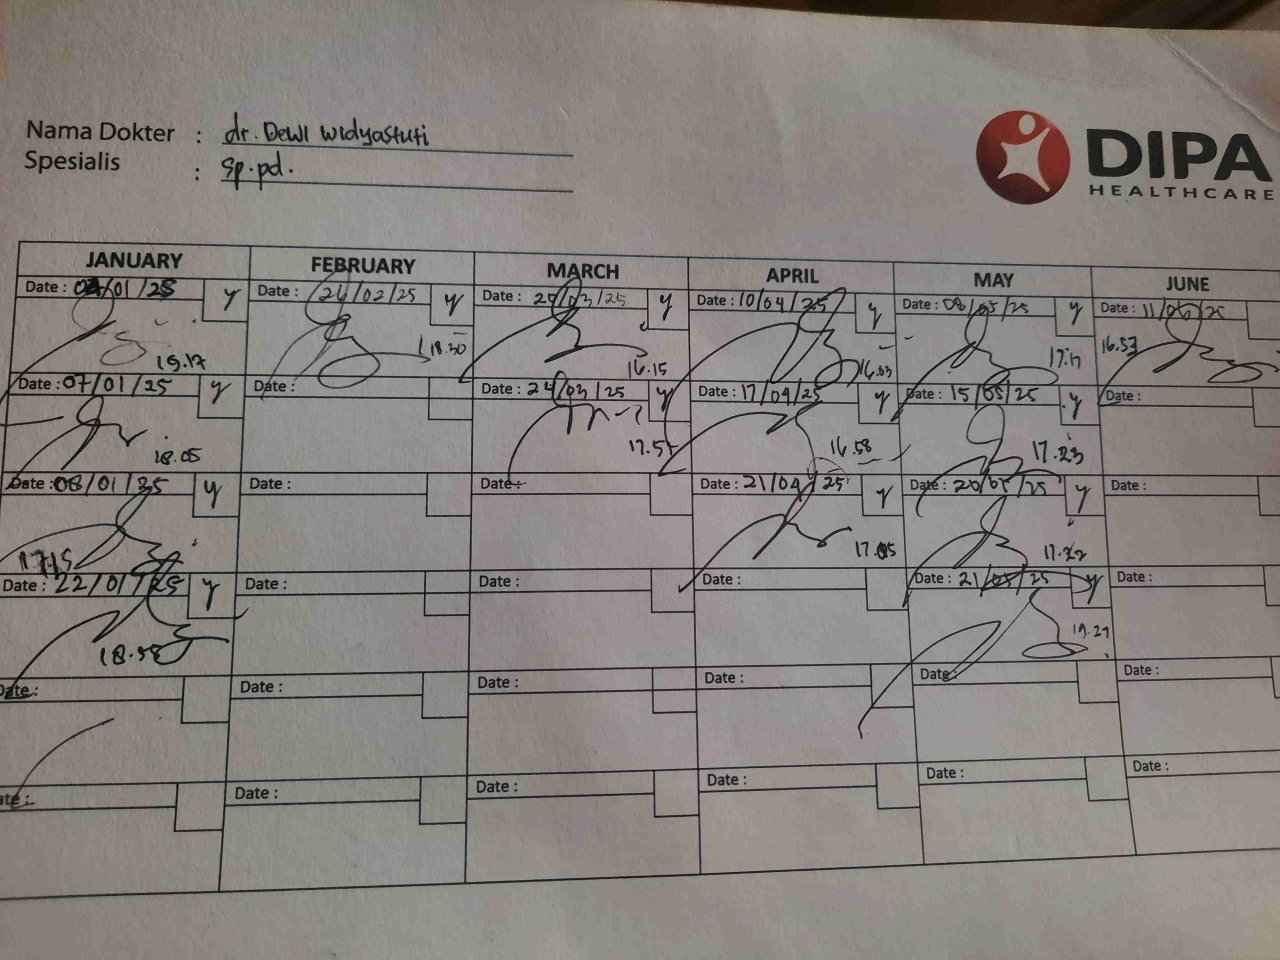 Nama Dokter : dr. Dewi Widyastuti
Spesialis : Sp.pd.
DIPA
HEALTHCARE
JANUARY FEBRUARY MARCH APRIL MAY JUNE
Date : /01/25 y Date : 26/02/25 y Date : 20/03/25 y Date : 10/04/25 y Date : 08/05/25 y Date : 11/06/25
18.30 16.15 16.53
Date : 07/01/25 y Date : Date : 24/03/25 y Date : 17/04/25 y Date : 15/05/25 y Date :
18.05 16.58 17.23
Date : 08/01/25 y Date : Date : Date : 21/04/25 y Date : 20/05/25 y Date :
17.15 17.05 17.22
Date : 22/01/25 y Date : Date : Date : Date : 21/05/25 y Date :
18.58
Date : Date : Date : Date : Date : Date :
Date : Date : Date : Date : Date :